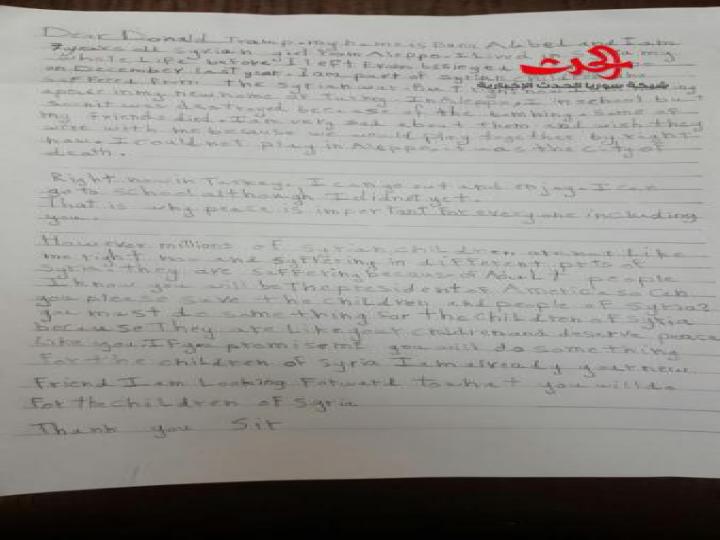 Dear Donald Tramp. my name is Bana Alabed and I am
7 years old Syrian girl from Aleppo. I lived in my
whole life before I left from besieged
on December last year. I am part of Syrian children
suffered from the Syrian war. But
peace in my new home of Turkey. In Aleppo, I in school but
soon it was destroyed because of the bombing. Some of
my friends died. I am very sad about them and wish they
were with me because we would play together by right
now. I could not play in Aleppo. it was the city of
death.
Right now in Turkey, I can go out and enjoy. I can
go to school although I didnt yet.
That is why peace is important for everyone including
you.
However millions of syrian children are not like
me right now and suffering in different prts of
Syria. they are suffering because of Adult people
I know you will be the president of America so can
you please save the children and people of Syria?
you must do something for the children of Syria
because They are like your children and deserve peace
like you. If you promise me you will do something
for the children of Syria I am already your new
friend I am Looking Forward to what you will do
For the children of Syria
Thank you Sir
الحدث
شبكة سوريا الحدث الإخبارية